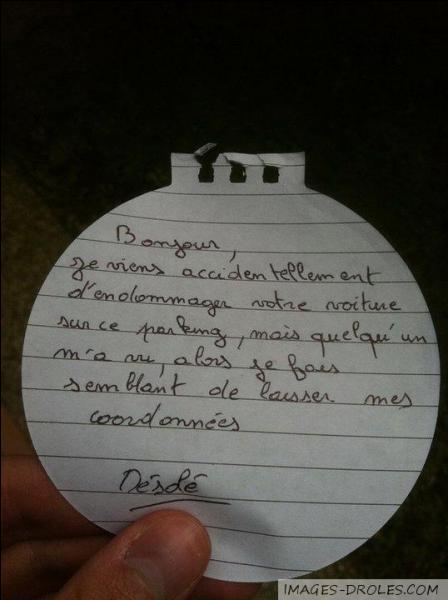 Bonjour,
je viens accidentellement
d'endommager votre voiture
sur ce parking, mais quelqu'un
m'a vu, alors je fais
semblant de laisser mes
coordonnées
Désolé
IMAGES-DROLES.COM